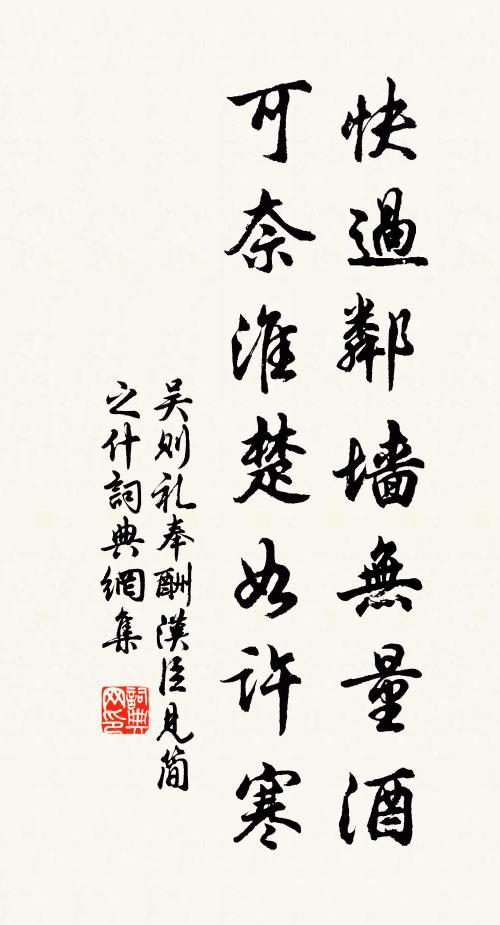 快過鄰墻無量酒
可奈淮楚如許寒
吴则礼奉酬漢臣見简
之什詞典網集
詞典网印